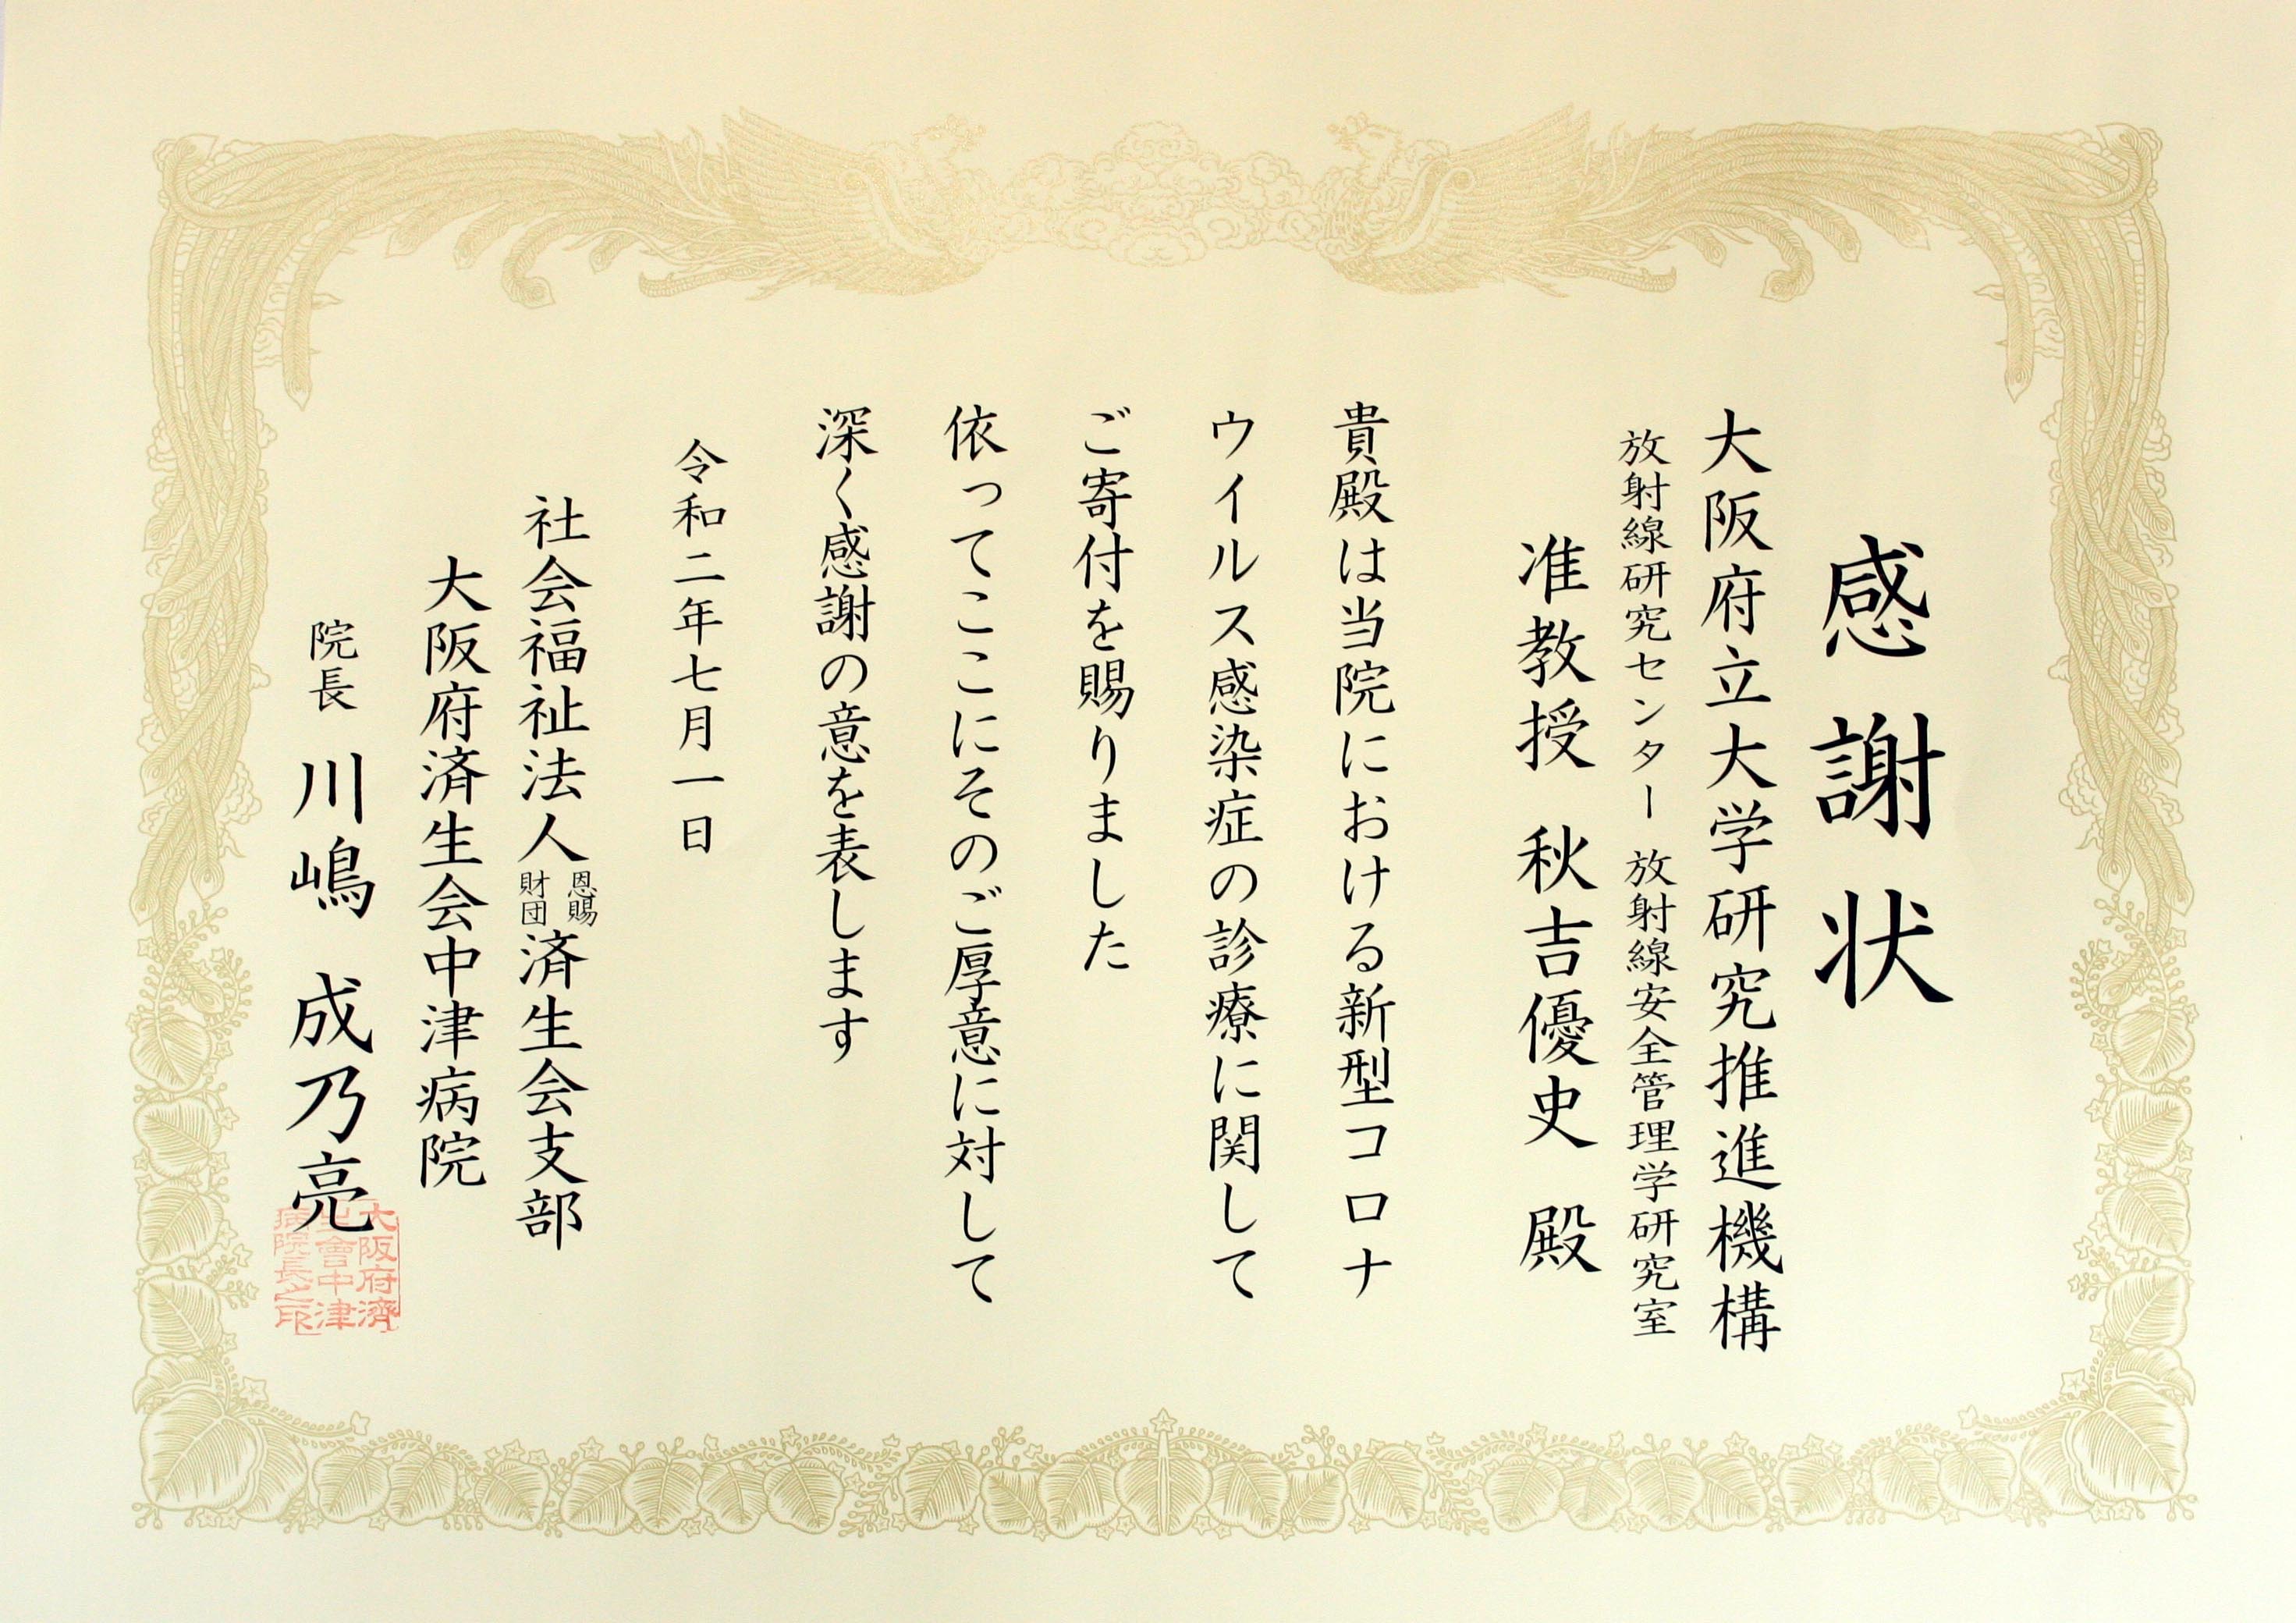 感謝状
大阪府立大学研究推進機構
放射線研究センター 放射線安全管理学研究室
准教授 秋吉優史 殿
貴殿は当院における新型コロナ
ウイルス感染症の診療に関して
ご寄付を賜りました
依ってここにそのご厚意に対して
深く感謝の意を表します
令和二年七月一日
社会福祉法人 恩賜財団 済生会支部
大阪府済生会中津病院
院長 川嶋 成乃亮
大阪府濟
生會中津
病院長之印